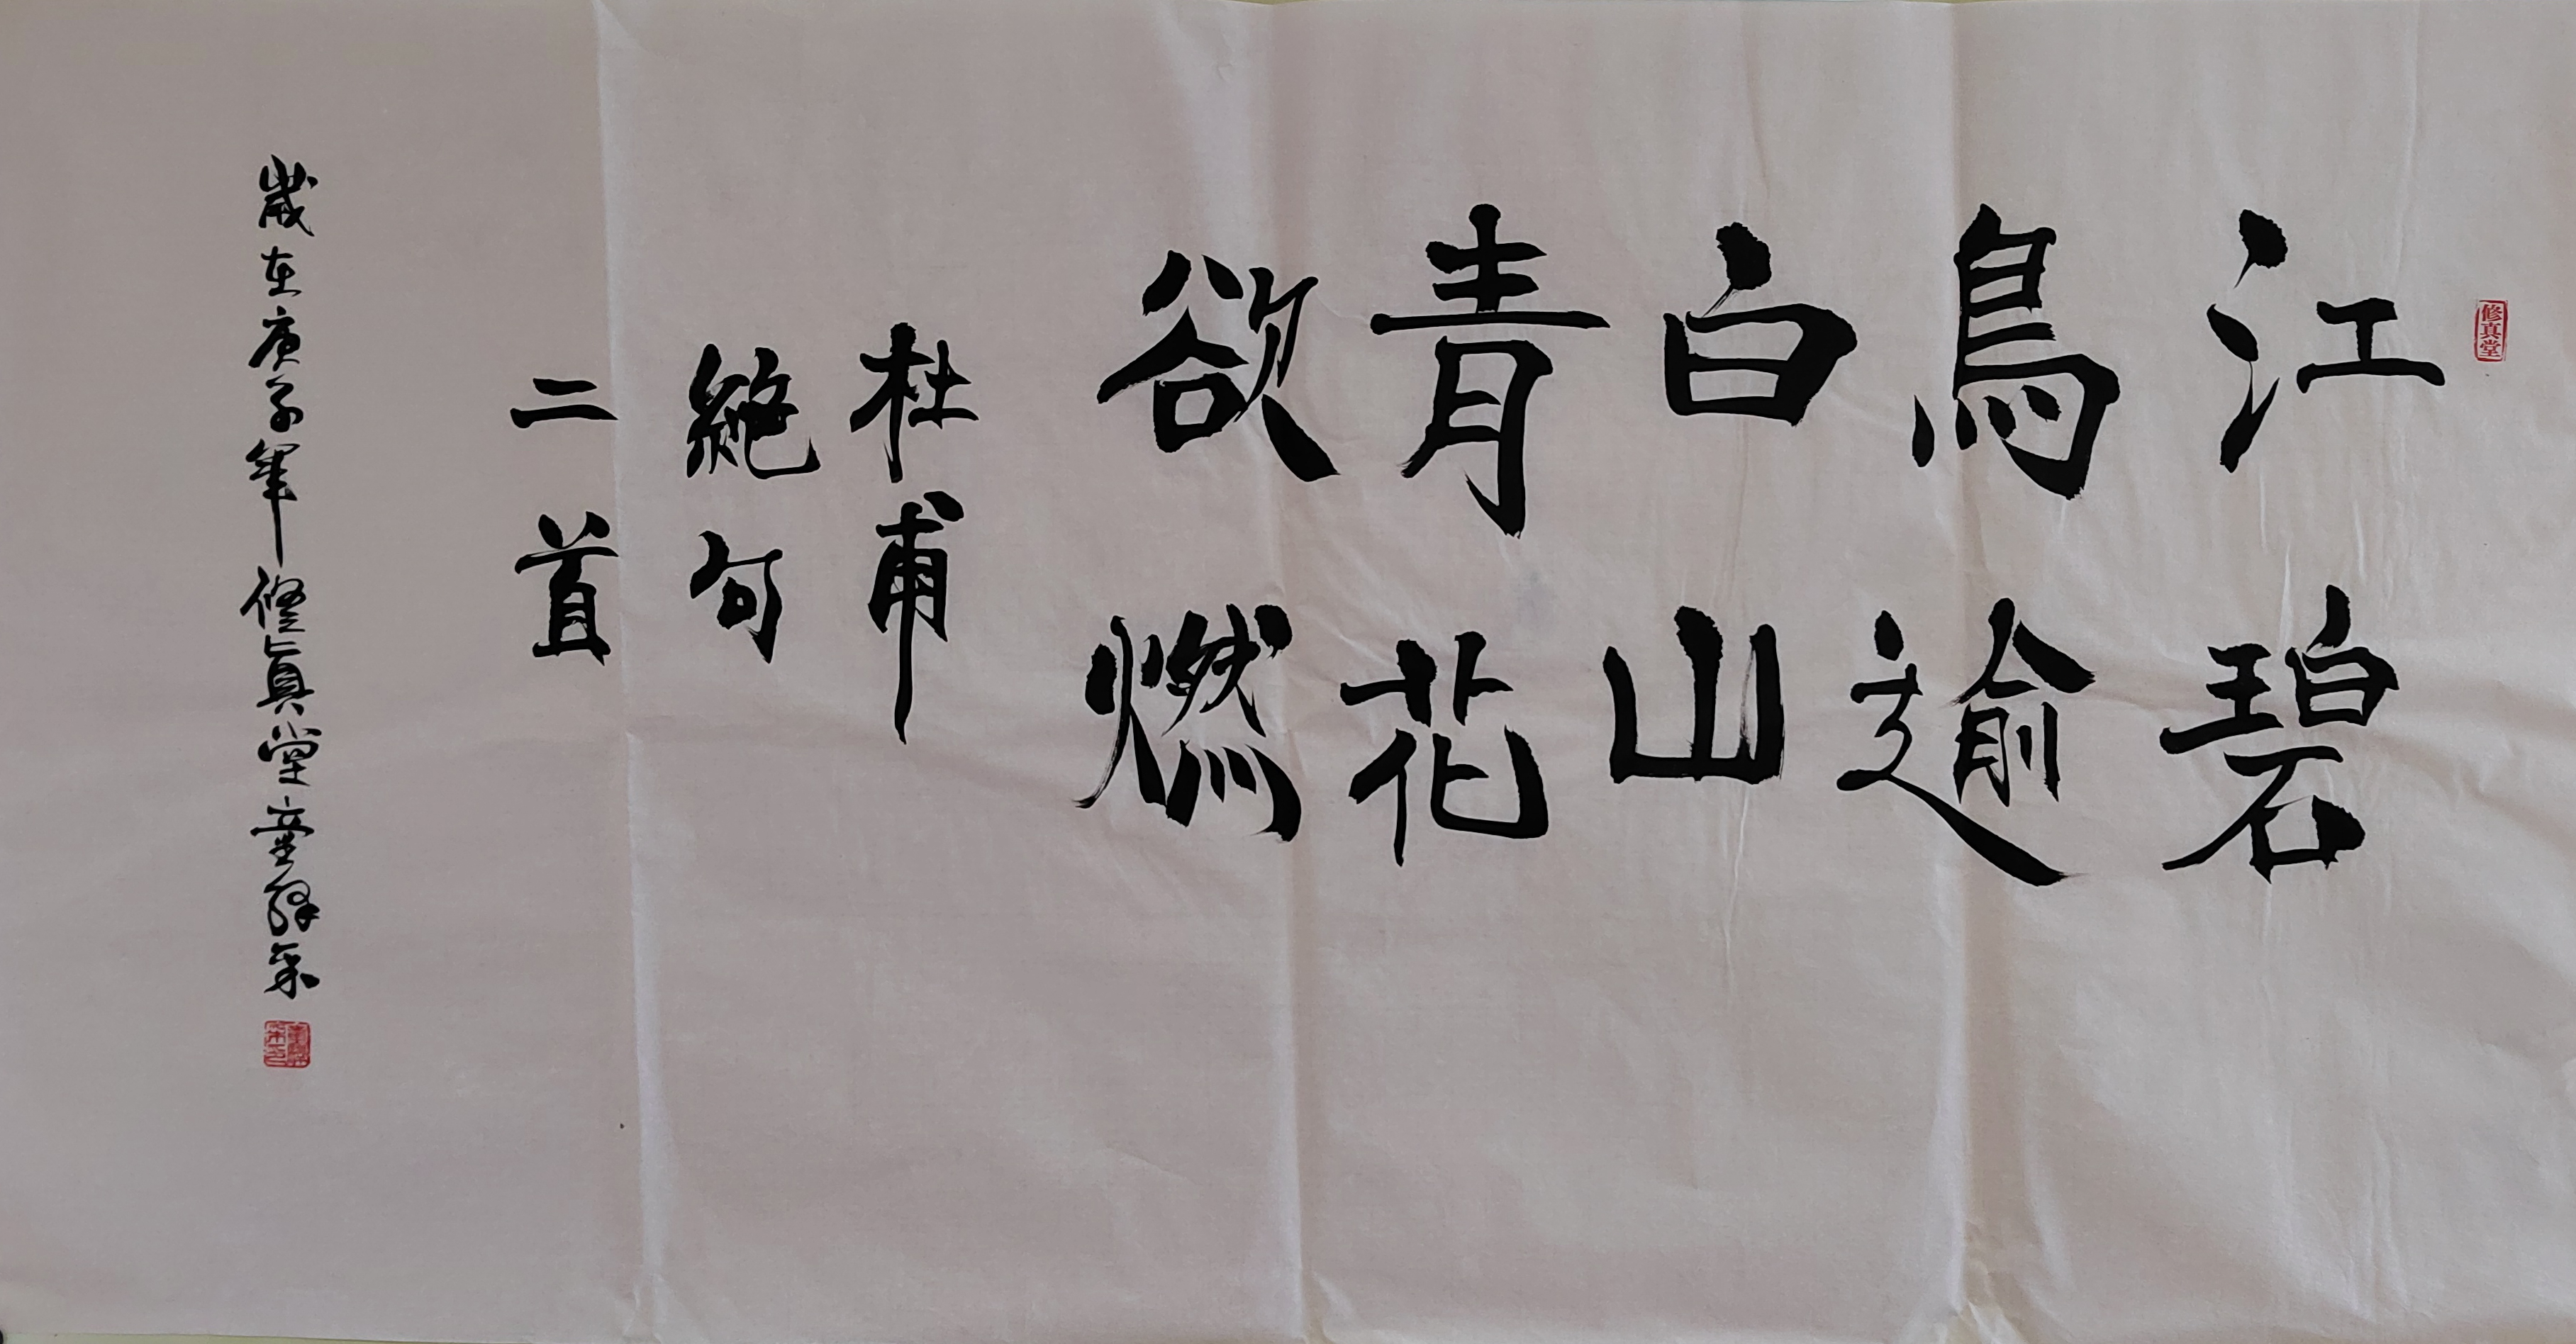 修真堂
江碧
鳥逾
白山
青花
欲燃
杜甫
絶句
二首
歲在庚子年修真堂童